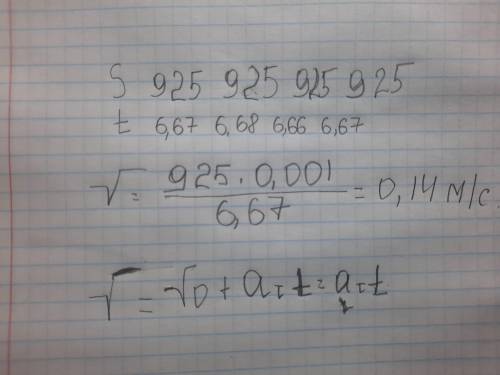 S 925 925 925 925
t 6,67 6,68 6,66 6,67
V = 925 · 0,001 / 6,67 = 0,14 м/с
V = V0 + aτt = aτt